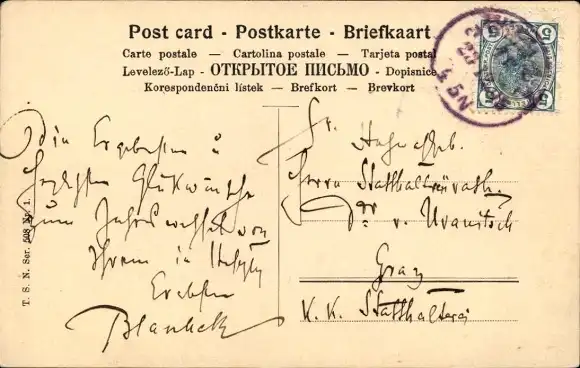 Post card - Postkarte - Briefkaart
Carte postale — Cartolina postale — Tarjeta postal
Levelező-Lap - ОТКРЫТОЕ ПИСЬМО - Dopisnice
Korespondenční lístek — Brefkort — Brevkort
5 5
5 5
T. S. N. Ser. 508 No. 1.
Die Ergebensten
Glückwünsche
zum Jahreswechsel von
Ihrem in
Sr. Hochgeb.
Herrn Statthaltereirath
Dr. v. Uranitsch
Graz
K. K. Statthalterei